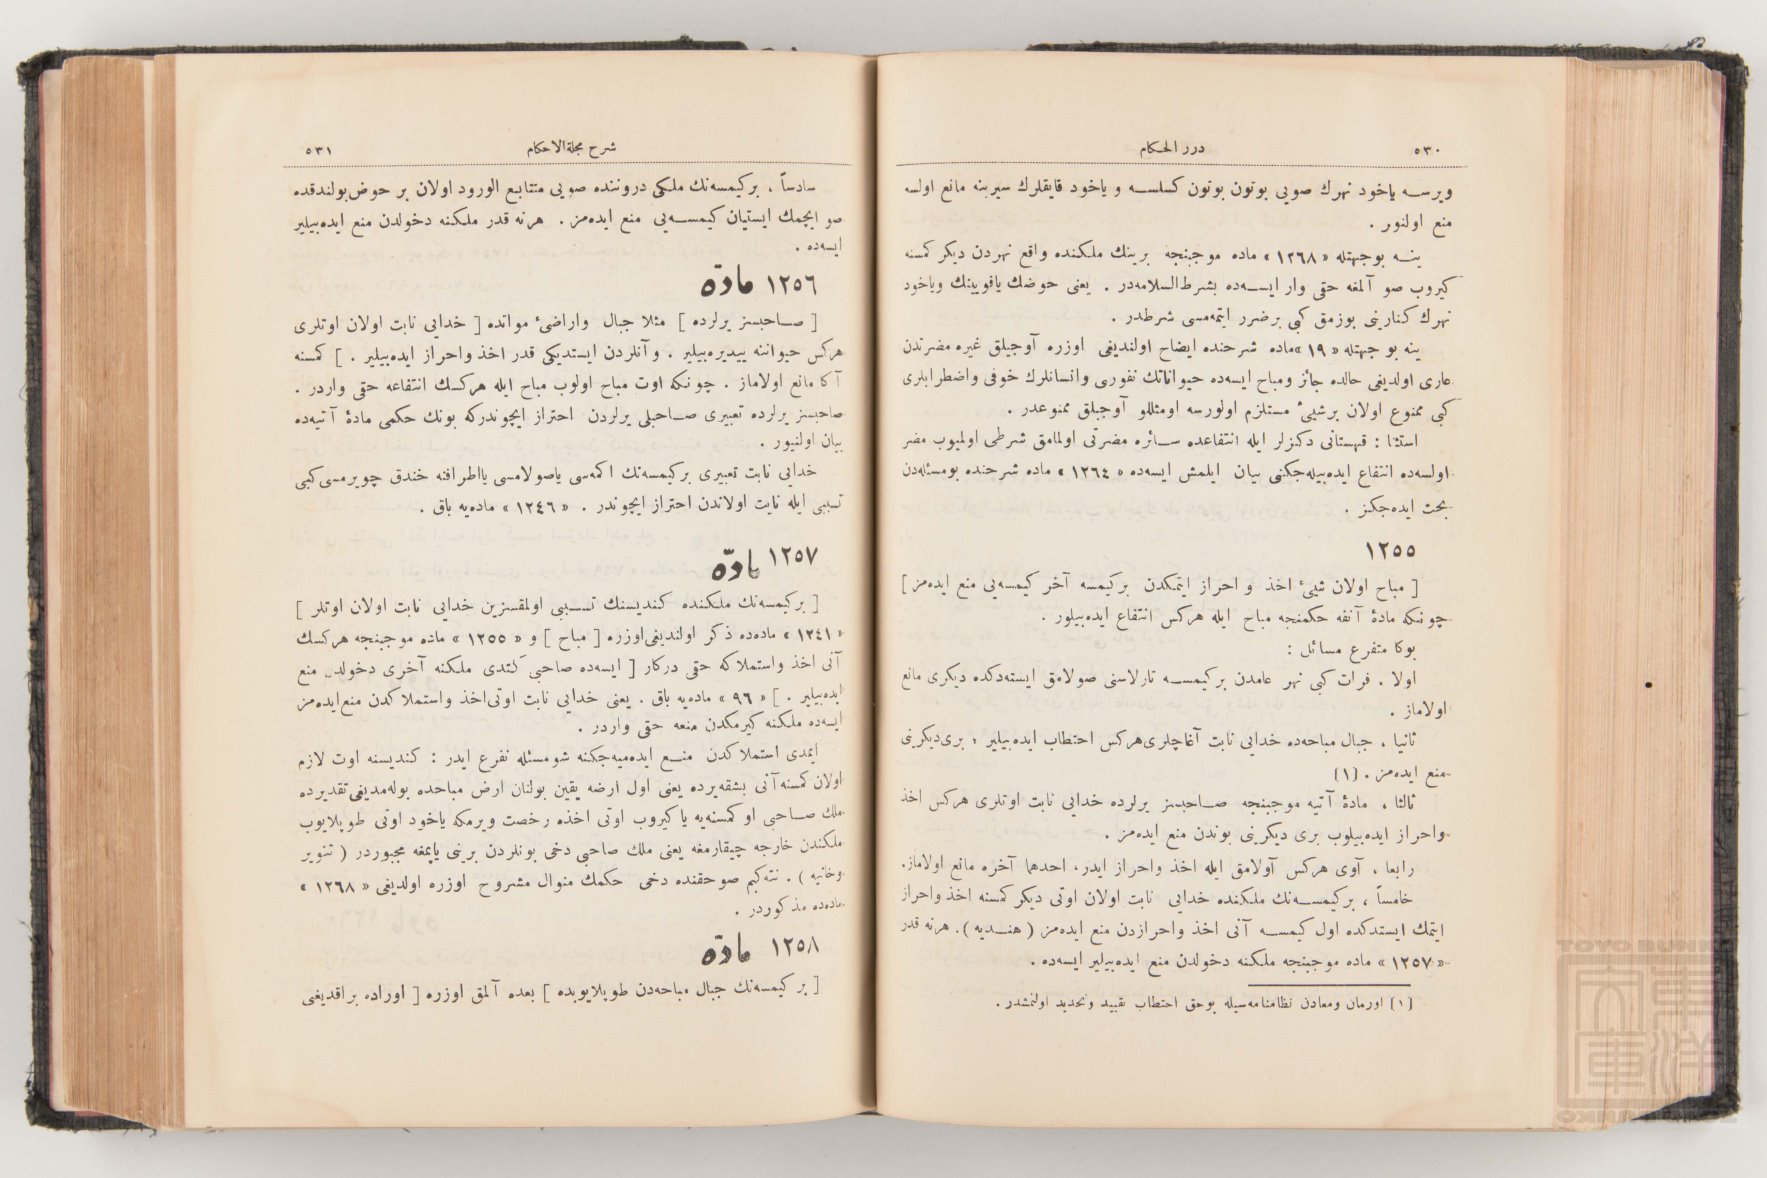 ٥٣٠
درر الحكام
ويرسه ياخود نهرك صويى بوتون بوتون كسلسه و ياخود قايقلرك سيرينه مانع اولسه
منع اولنور .
ينه بوجهتله « ١٢٦٨ » ماده موجبنجه برينك ملكنده واقع نهردن ديكر كمسنه
كيروب صو آلمغه حقى وار ايسه‌ده بشرط السلامه‌در . يعنى حوضك ياقويينك وياخود
نهرك كنارينى بوزمق كبى برضرر ايتمه‌مسى شرطدر .
ينه بوجهتله « ١٩ » ماده شرحنده ايضاح اولنديغى اوزره آوجيلق غيره مضرتدن
عارى اولديغى حالده جائز ومباح ايسه‌ده حيواناتك نفورى وانسانلرك خوفى واضطرابلرى
كبى ممنوع اولان برشيئ مستلزم اولورسه اومثللو آوجيلق ممنوعدر .
استثنا : قهستانى دكزلر ايله انتفاعده سائره مضرتى اولمامق شرطى اولميوب مضر
اولسه‌ده انتفاع ايده‌بيله‌جكنى بيان ايلمش ايسه‌ده « ١٢٦٤ » ماده شرحنده بومسئله‌دن
بحث ايده‌جكز .
١٢٥٥
[ مباح اولان شيئ اخذ و احراز ايتمكدن بركيمسه آخر كيمسه‌يى منع ايده‌مز ]
چونكه مادۀ آنفه حكمنجه مباح ايله هركس انتفاع ايده‌بيلور .
بوكا متفرع مسائل :
اولا . فرات كبى نهر عامدن بركيمسه تارلاسنى صولامق ايسته‌دكده ديكرى مانع
اولاماز .
ثانيا ، جبال مباحه‌ده خدايى نابت آغاچلرى هركس احتطاب ايده‌بيلير ؛ برى ديكرينى
منع ايده‌مز . (١)
ثالثا ، مادۀ آتيه موجبنجه صاحبسز يرلرده خدايى نابت اوتلرى هركس اخذ
واحراز ايده‌بيلوب برى ديكرينى بوندن منع ايده‌مز .
رابعا ، آوى هركس آولامق ايله اخذ واحراز ايدر، احدهما آخره مانع اولاماز.
خامساً ، بركيمسه‌نك ملكنده خدايى نابت اولان اوتى ديكر كمسنه اخذ واحراز
ايتمك ايستدكده اول كيمسه آنى اخذ واحرازدن منع ايده‌مز ( هنديه ). هرنه قدر
« ١٢٥٧ » ماده موجبنجه ملكنه دخولدن منع ايده‌بيلير ايسه‌ده .
(١) اورمان ومعادن نظامنامه‌سيله بوحق احتطاب تقييد وتحديد اولنمشدر .
شرح مجلة الاحكام
٥٣١
سادساً ، بركيمسه‌نك ملكى دروننده صويى متتابع الورود اولان بر حوض بولندقده
صو ايچمك ايستيان كيمسه‌يى منع ايده‌مز . هرنه قدر ملكنه دخولدن منع ايده‌بيلير
ايسه‌ده .
١٢٥٦ مادّه
[ صاحبسز يرلرده ] مثلا جبال واراضئ مواتده [ خدايى نابت اولان اوتلرى
هركس حيواننه ييديره‌بيلير . و آنلردن ايستديكى قدر اخذ واحراز ايده‌بيلير . ] كمسنه
آكا مانع اولاماز . چونكه اوت مباح اولوب مباح ايله هركسك انتفاعه حقى واردر .
صاحبسز يرلرده تعبيرى صاحبلى يرلردن احتراز ايچوندركه بونك حكمى مادۀ آتيه‌ده
بيان اولنيور .
خدايى نابت تعبيرى بركيمسه‌نك اكمه‌سى ياصولامسى يااطرافنه خندق چويرمسى كبى
تسببى ايله نابت اولاندن احتراز ايچوندر . « ١٢٤٦ » ماده‌يه باق .
١٢٥٧ مادّه
[ بركيمسه‌نك ملكنده كنديسنك تسببى اولمقسزين خدايى نابت اولان اوتلر ]
« ١٢٤١ » ماده‌ده ذكر اولنديغى اوزره [ مباح ] و « ١٢٥٥ » ماده موجبنجه هركسك
آنى اخذ واستملاكه حقى دركار [ ايسه‌ده صاحبى كندى ملكنه آخرى دخولدن منع
ايده‌بيلير . ] « ٩٦ » ماده‌يه باق . يعنى خدايى نابت اوتى اخذ واستملاكدن منع ايده‌مز
ايسه‌ده ملكنه كيرمكدن منعه حقى واردر .
ايمدى استملاكدن منع ايده‌ميه‌جكنه شومسئله تفرع ايدر : كنديسنه اوت لازم
اولان كمسنه آنى بشقه‌يرده يعنى اول ارضه يقين بولنان ارض مباحده بوله‌مديغى تقديرده
ملك صاحبى او كمسنه‌يه يا كيروب اوتى اخذه رخصت ويرمكه ياخود اوتى طوپلايوب
ملكندن خارجه چيقارمغه يعنى ملك صاحبى دخى بونلردن برنى ياپمغه مجبوردر ( تنوير
وخانيه ) . نته‌كيم صوحقنده دخى حكمك منوال مشروح اوزره اولديغى « ١٢٦٨ »
ماده‌ده مذكوردر .
١٢٥٨ مادّه
[ بر كيمسه‌نك جبال مباحه‌دن طوپلايوبده ] بعده آلمق اوزره [ اوراده براقديغى
TOYO BUNKO